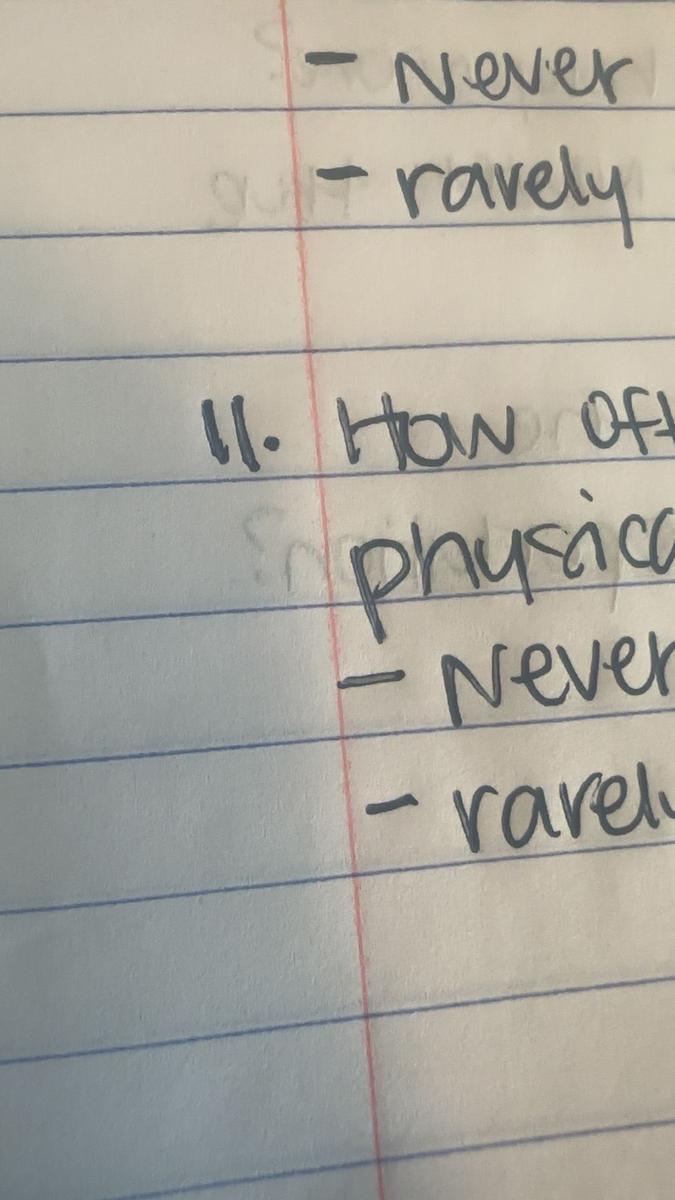 - Never
- rarely
11. How oft
physica
- Never
- rarely